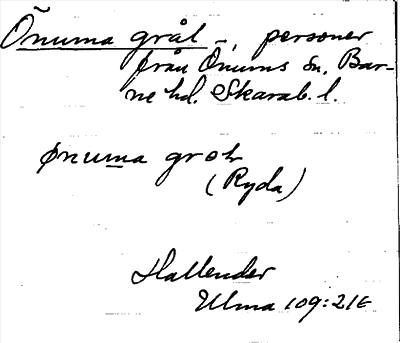 Õnuma gråt –, personer
från Õnums sn. Bar-
ne hd. Skarab. l.
ønuma grot
(Ryda)
Hallender
Ulma 109:21E